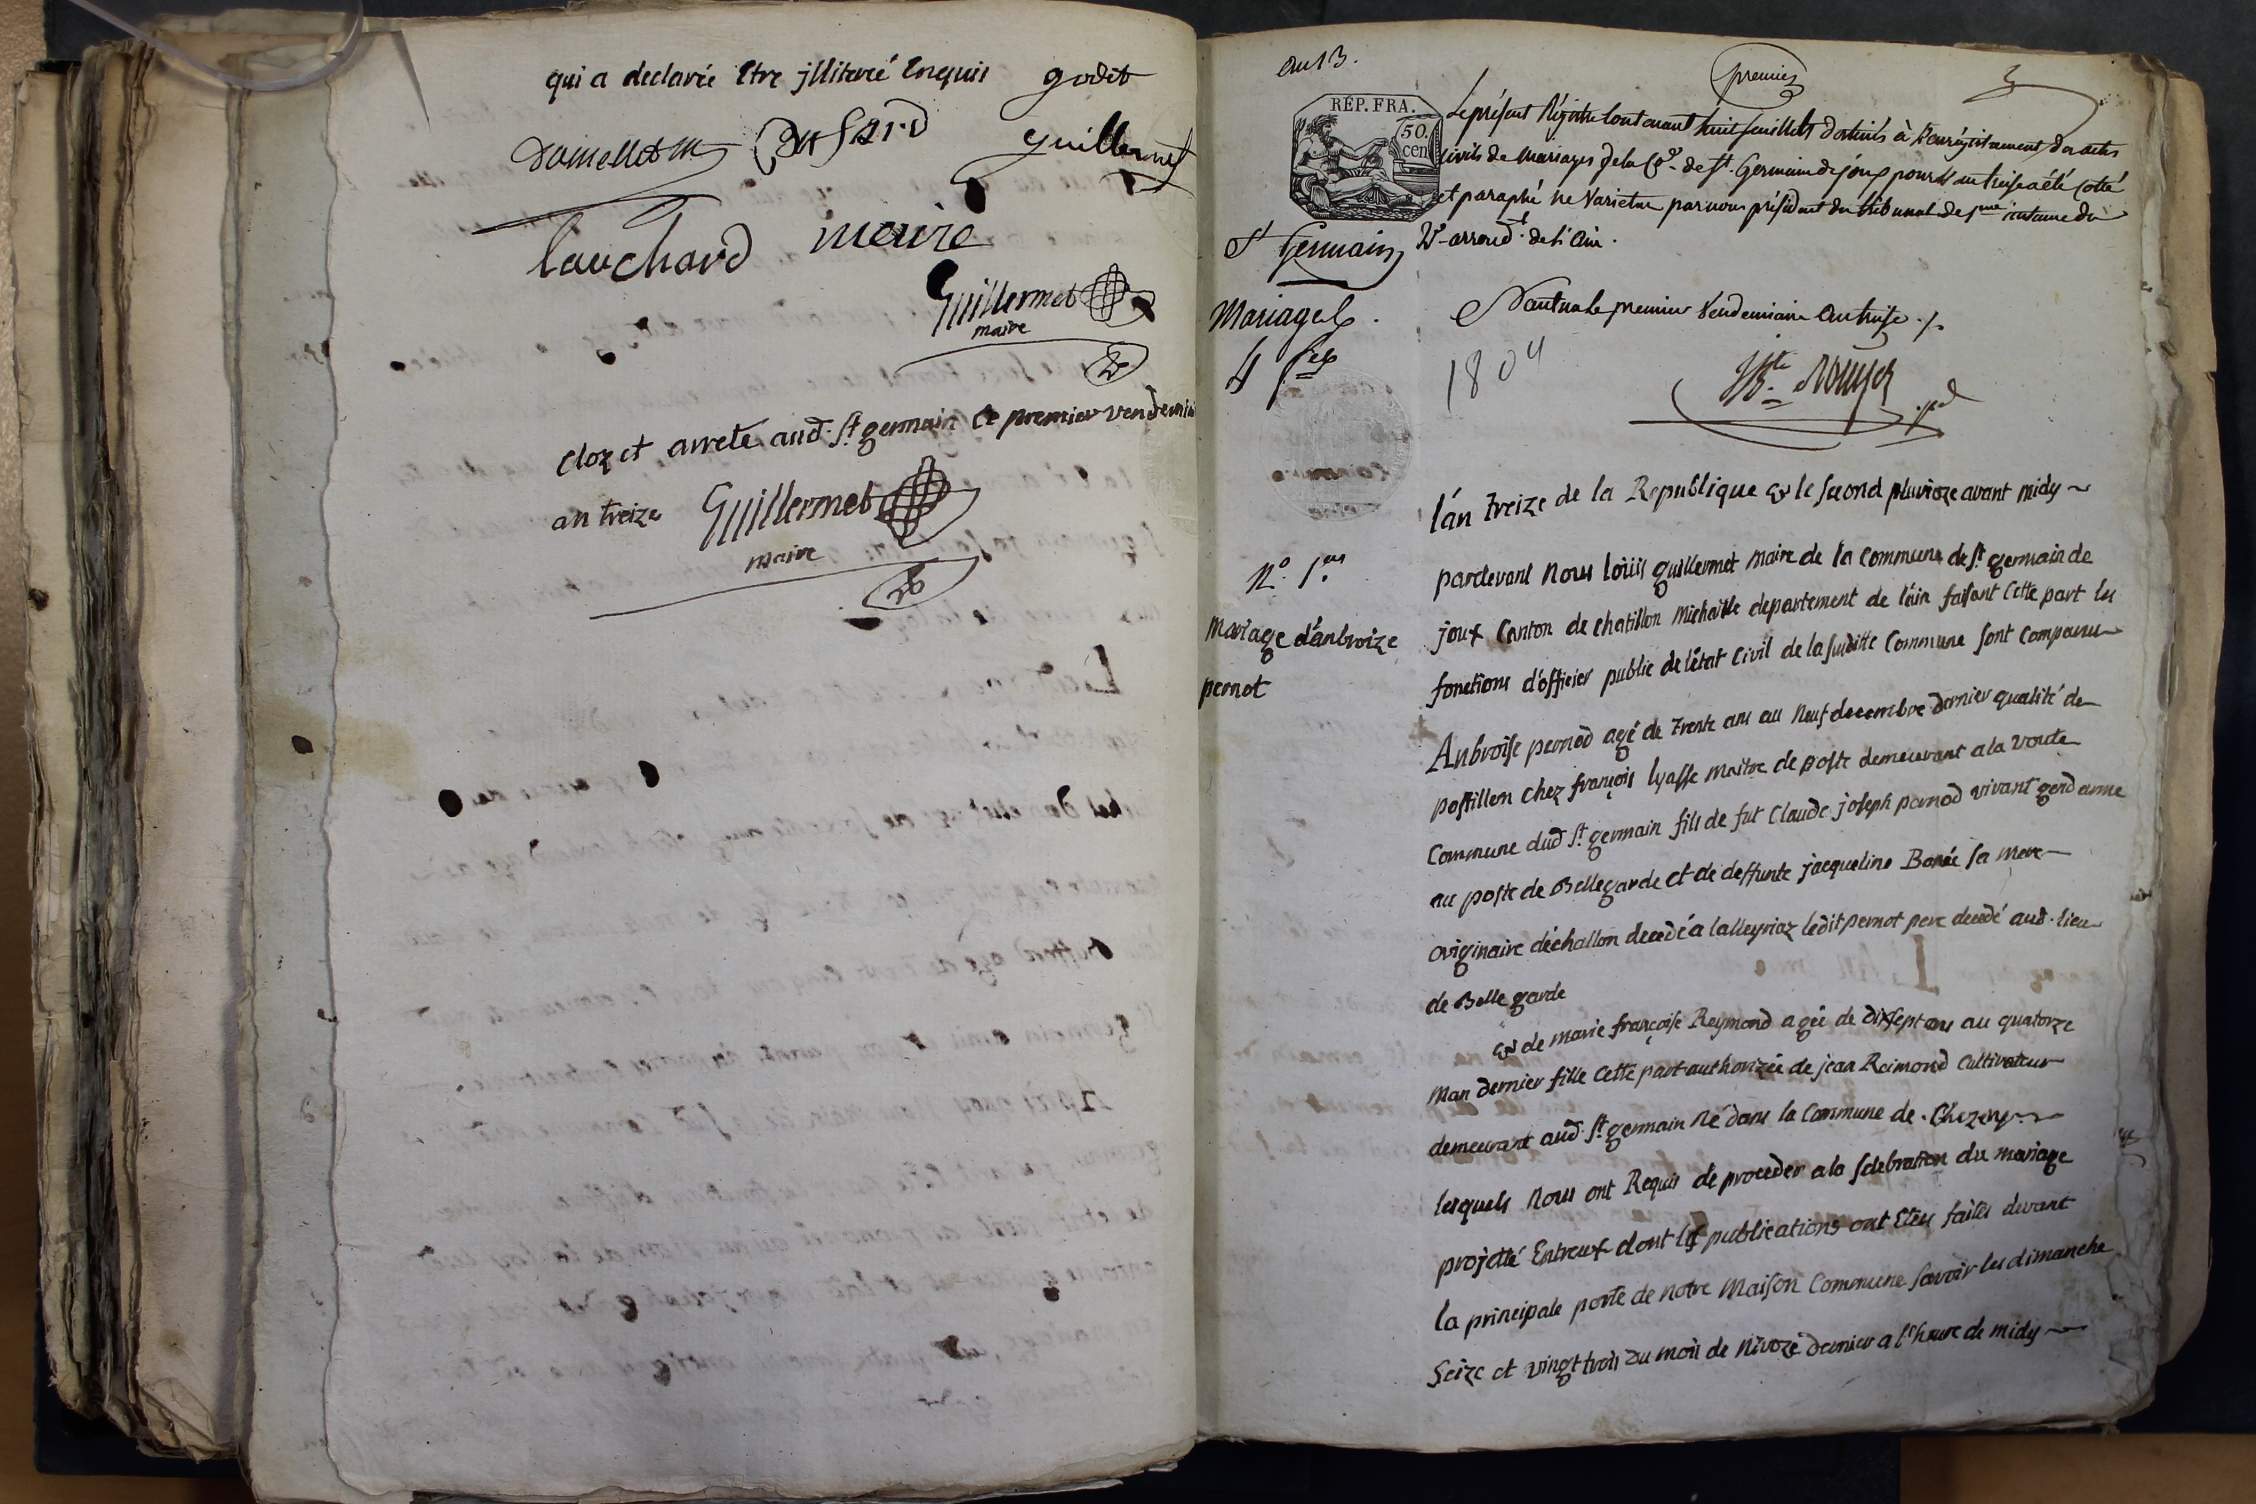 qui a declarée Etre jlliterée Enquis godet
guillermet
lauchard meure
Guillermet
maire
Cloz et arreté aud. St germain le premier vendemi
an treize Guillermet
maire
an 13.
premier
RÉP. FRA.
50.
cen
Le présent Régistre Contenant huit feuillets destinés à l'enrégistrement des actes
civils de Mariages de la Cne. de St. Germain de joux pour l'an treize a été Cotté
et paraphé ne varietur par nous président du tribunal de 1ere instance du
arrond.t de l'Ain.
St Germain
Mariages.
4 f
Nantua le premier Vendemiaire an treize ./.
1804
l'an treize de la Republique & le second pluvioze avant midy
N.o 1.er
pardevant Nous loüis guillermet maire de la Commune de St germain de
joux Canton de chatillon michaille departement de l'ain faisant Cette part les
Mariage d'anbroize
pernot
fonctions d'officier public de l'état Civil de la susditte Commune sont Comparu
Anbroise pernod agé de trente ans au neuf decembre dernier qualité de
postillon chez françois lyasse maitre de poste demeurant a la voute
Commune dud St germain fils de fut Claude joseph pernod vivant gendarme
au poste de Bellegarde et de deffunte jacqueline sa mere
originaire d'échallon decedé a lalleyriaz ledit pernot pere decedé aud. lieu
de Bellegarde
& de marie françoise Reymond agée de dixsept ans au quatorze
Mars dernier fille Cette part authorizée de jean Reimond Cultivateur
demeurant aud. St germain Né dans la Commune de . Chezery
lesquels Nous ont Requis de proceder a la selebration du mariage
projetté Entreux dont les publications ont Etées faites devant
la principale porte de notre Maison Commune savoir les dimanche
Seize et vingt trois du mois de Nivoze dernier a l'heure de midy